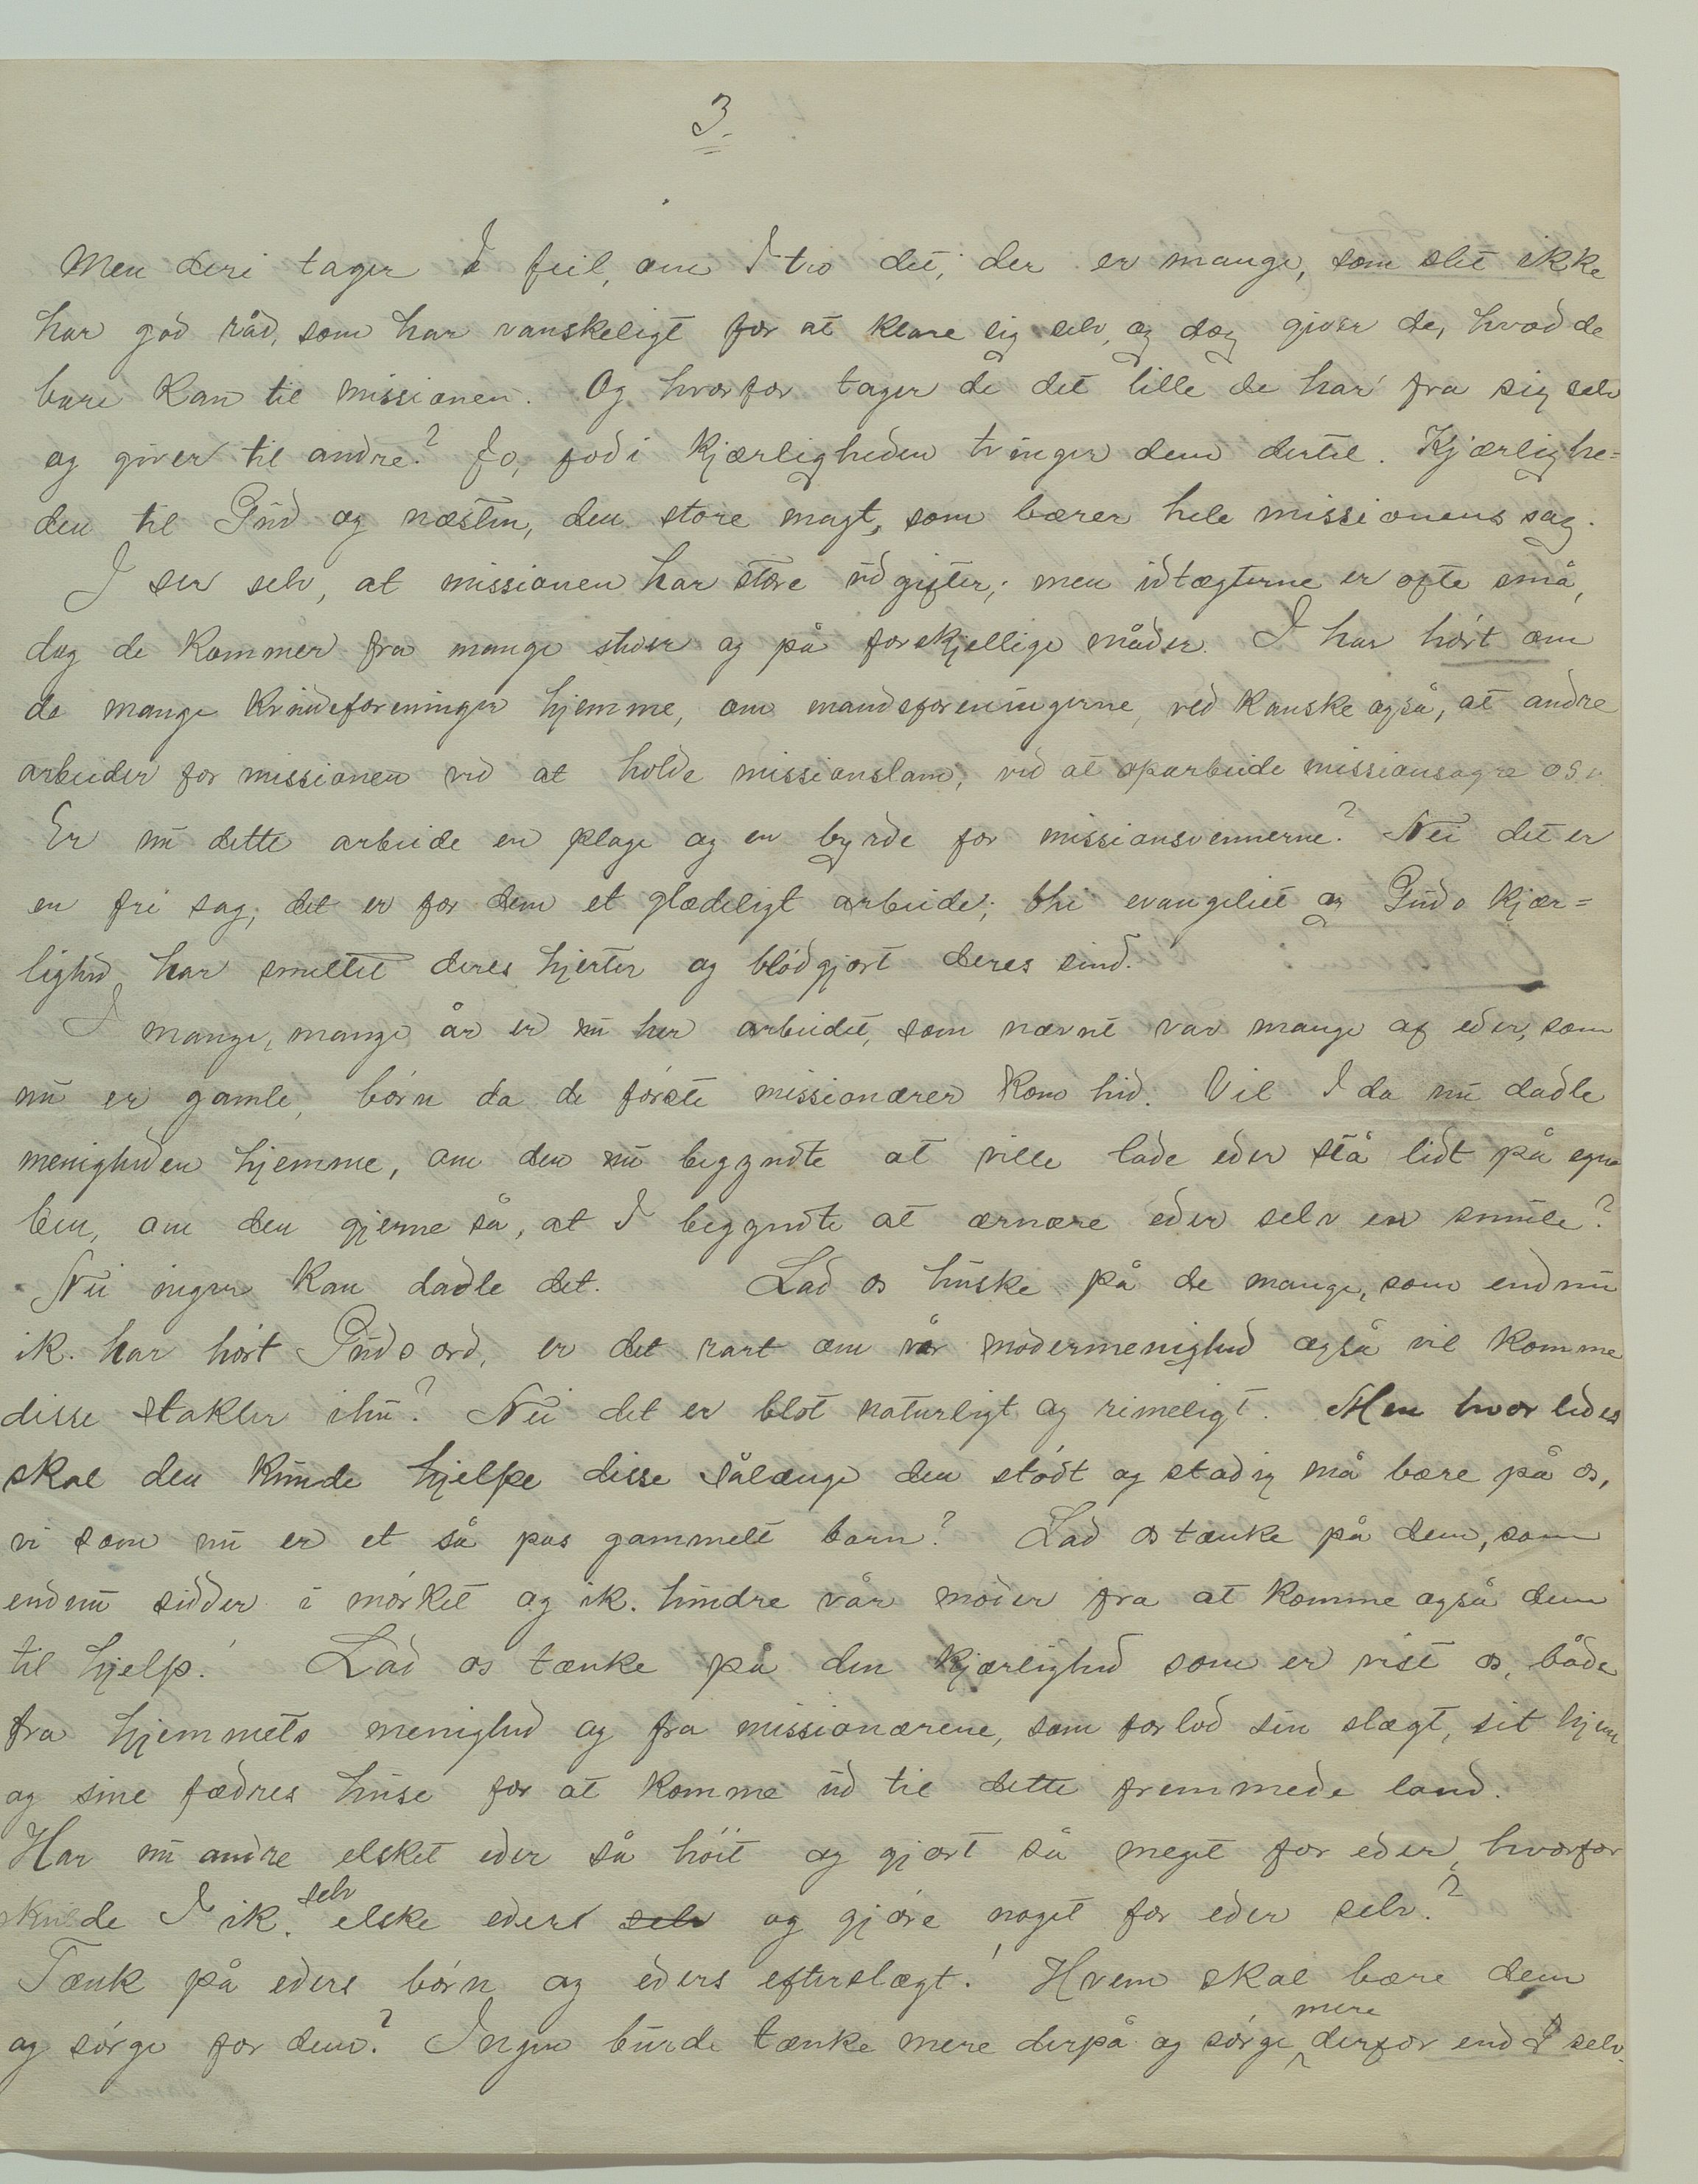 3.
Men deri tager I feil, om I tro det; der er mange, som slet ikke
har god råd, som har vanskeligt for at klare sig selv, og dog giver de, hvad de
bare kan til missionen. Og hvorfor tager de det lille de har fra sig selv
og giver til andre? Jo, fodi kjærligheden tvinger dem dertil. Kjærlighe=
den til Gud og næsten, den store magt, som bærer hele missionens sag.
I ser selv, at missionen har store udgifter; men idtægterne er ofte små,
dog de kommer fra mange steder og på forskjellige måder. I har hørt om
de mange kvindeforeninger hjemme, om mandsforeningerne, ved kanske også, at andre
arbeider for missionen ved at holde missionslam, ved at oparbeide missionsagre osv.
Er nu dette arbeide en plage og en byrde for missionsvennerne? Nei det er
en fri sag, det er for dem et glædeligt arbeide; thi evangeliet og Guds kjær=
lighed har smeltet deres hjerter og blødgjort deres sind.
I mange, mange år er nu her arbeidet, som nævnt var mange af eder, som
nu er gamle, børn da de første missionærer kom hid. Vil I da nu dadle
menigheden hjemme, om den nu begyndte at ville lade eder stå lidt på egne
ben, om den gjerne så, at I begyndte at ernære eder selv en smule?
Nei ingen kan dadle det. Lad os huske på de mange, som endnu
ik. har hørt Guds ord, er det rart om vår modermenighed også vil komme
disse stakler ihu? Nei det er blot naturligt og rimeligt. Men hvorledes
skal den kunde hjelpe disse sålænge den stødt og stadig må bære på os,
vi som nu er et så pas gammelt barn? Lad os tænke på dem, som
endnu sidder i mørket og ik. hindre vår moder fra at komme også dem
til hjelp! Lad os tænke på den kjærlighed som er vist os, både
fra hjemmets menighed og fra missionærene, som forlod sin slægt, sit hjem
og sine fædres huse for at komme ud til dette fremmede land.
Har nu andre elsket eder så høit og gjort så meget for eder, hvorfor
skulde I ik. selv elske eders selv og gjøre noget for eder selv?
Tænk på eders børn og eders efterslægt! Hvem skal bære dem
og sørge for dem? Ingen burde tænke mere derpå og sørge mere derfor end I selv.